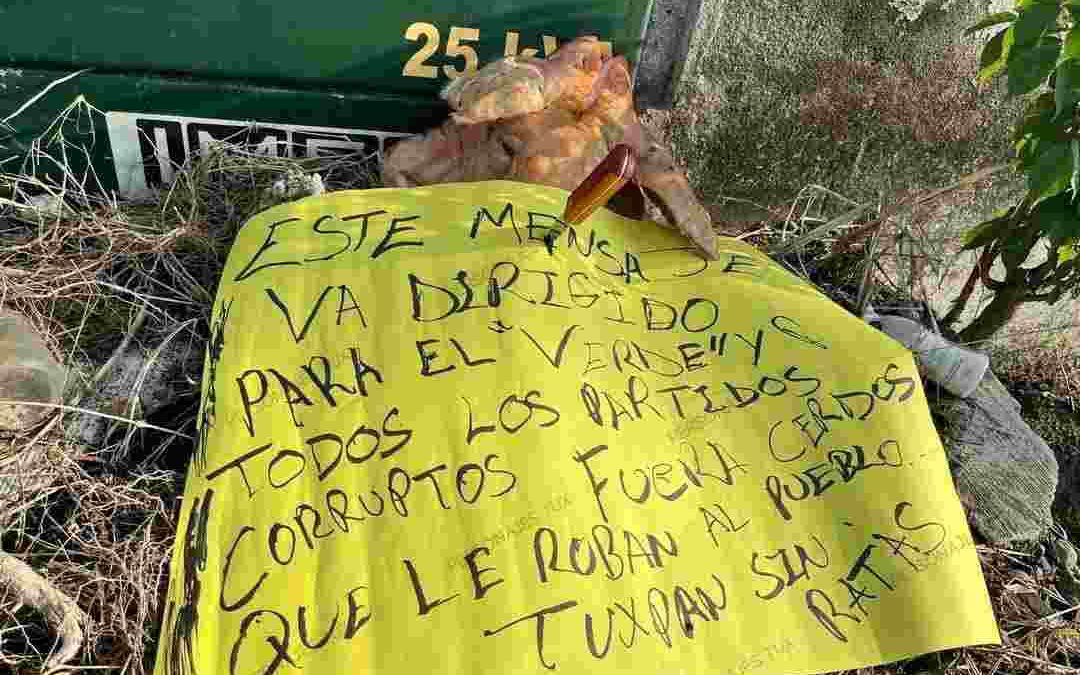 25 kVA
ESTE MENSAJE
VA DIRIGIDO
PARA EL "VERDE" Y
TODOS LOS PARTIDOS
CORRUPTOS FUERA CERDOS
QUE LE ROBAN AL PUEBLO...
TUXPAN SIN RATAS